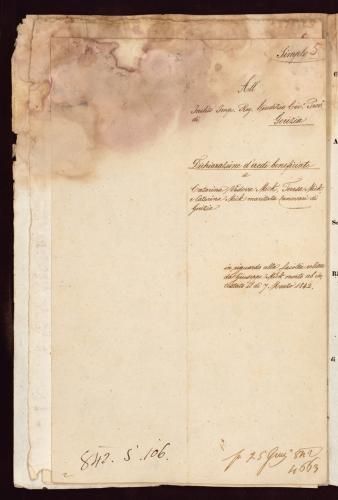 Simplo 5
All
Inclito Imp. Reg. Giudizio Civ. Prov.
di Gorizia
Dichiarazione d'eredi beneficiate
di
Catarina Vedova Mick, Teresa Mick
e Caterina Mick maritata
Gorizia
in riguardo alla facoltà
da Giuseppe Mick morto ab in
testato il dì 7. Marzo 1842.
842. 5. 106.
25 842
4663